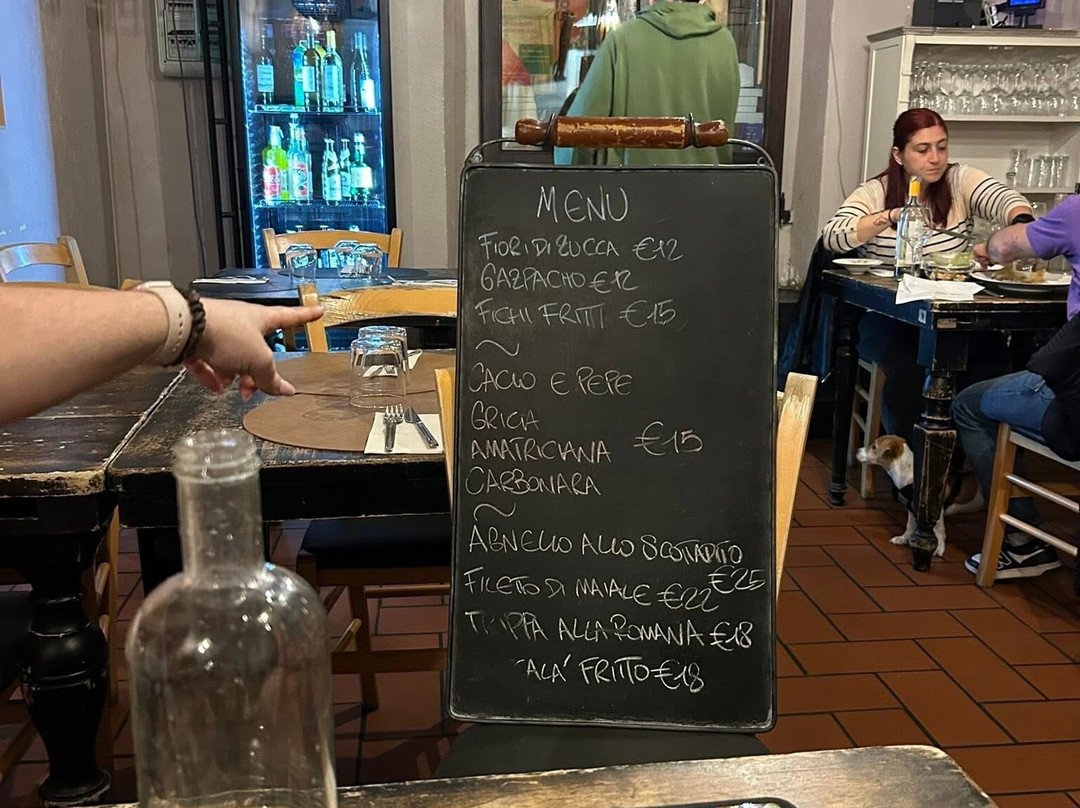 MENU
FIORI DI ZUCCA €12
GAZPACHO €12
FICHI FRITTI €15
~
CACIO E PEPE
GRICIA
AMATRICIANA €15
CARBONARA
~
AGNELLO ALLO SCOTTADITO
€25
FILETTO DI MAIALE €22
TRIPPA ALLA ROMANA €18
FRITTO €18